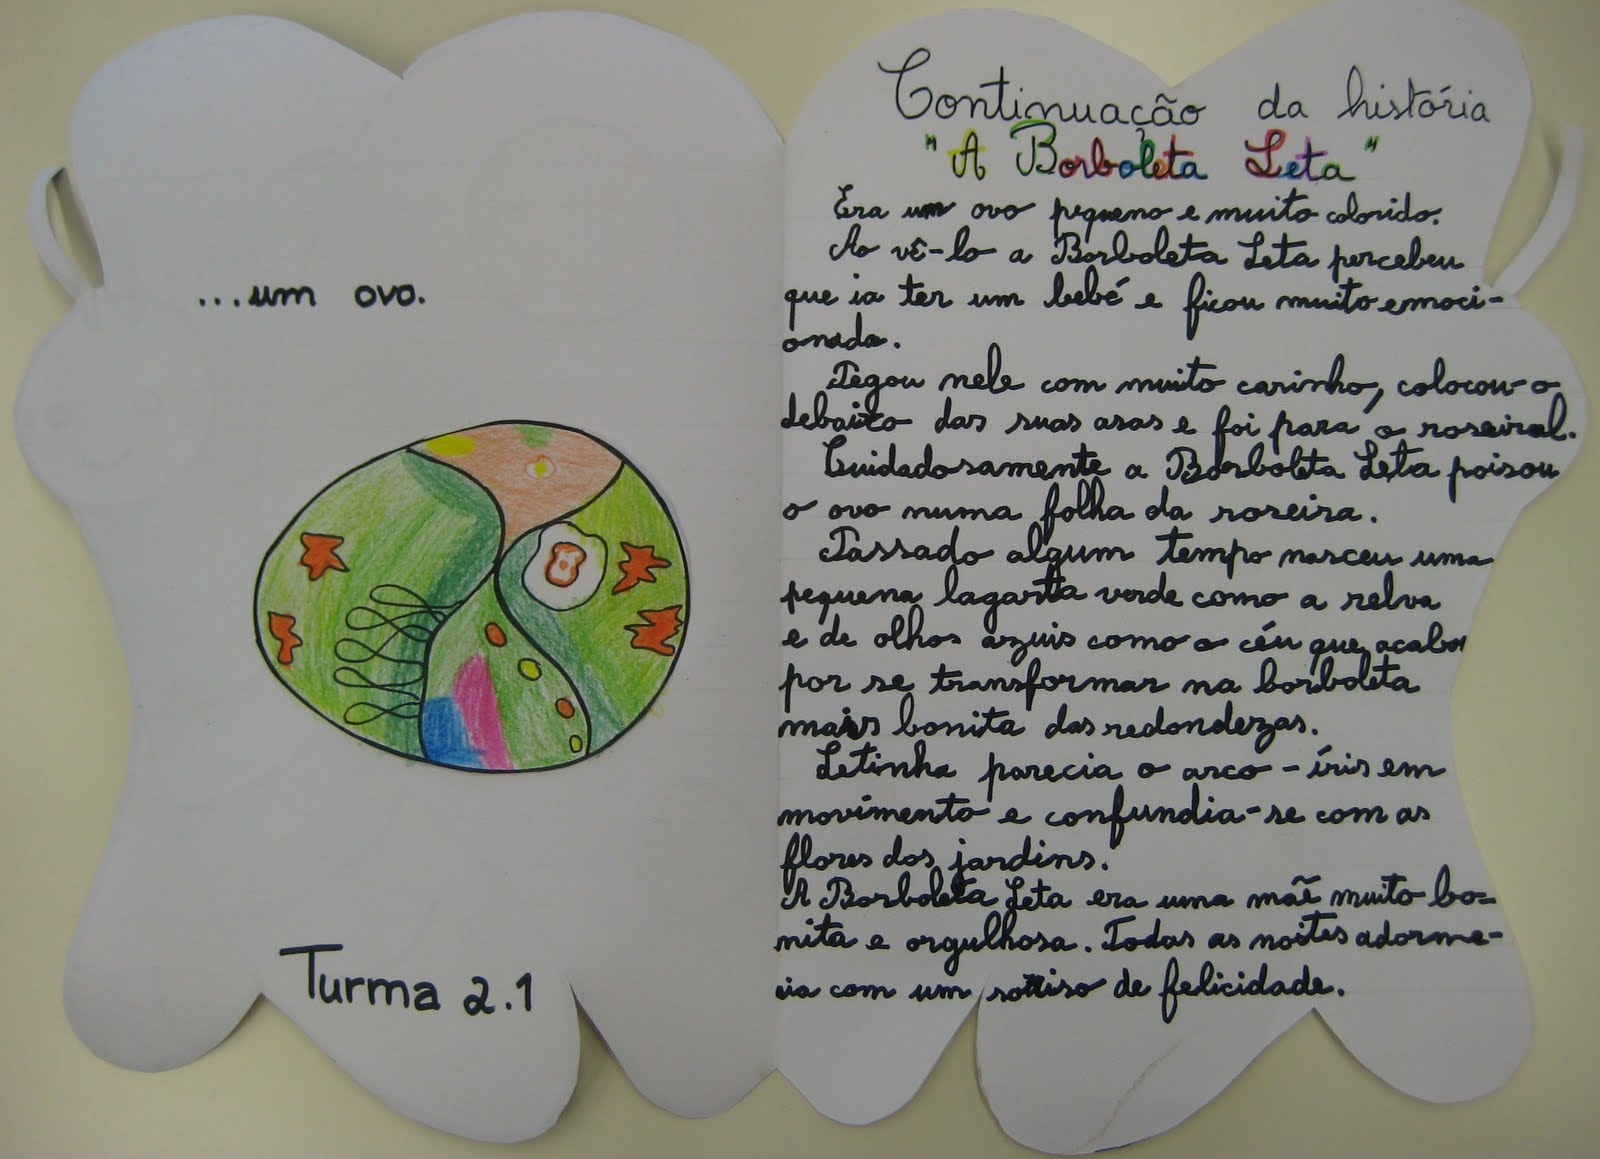 ...um ovo.
Turma 2.1
Continuação da história
"A Borboleta Leta"
Era um ovo pequeno e muito colorido.
Ao vê-lo a Borboleta Leta percebeu
que ia ter um bebé e ficou muito emoci-
onada.
Pegou nele com muito carinho, colocou-o
debaixo das suas asas e foi para o roseiral.
Cuidadosamente a Borboleta Leta poisou
o ovo numa folha da roseira.
Passado algum tempo nasceu uma
pequena lagarta verde como a relva
e de olhos azuis como o céu que acabou
por se transformar na borboleta
mais bonita das redondezas.
Letinha parecia o arco-íris em
movimento e confundia-se com as
flores dos jardins.
A Borboleta Leta era uma mãe muito bo-
nita e orgulhosa. Todas as noites adorme-
cia com um sorriso de felicidade.